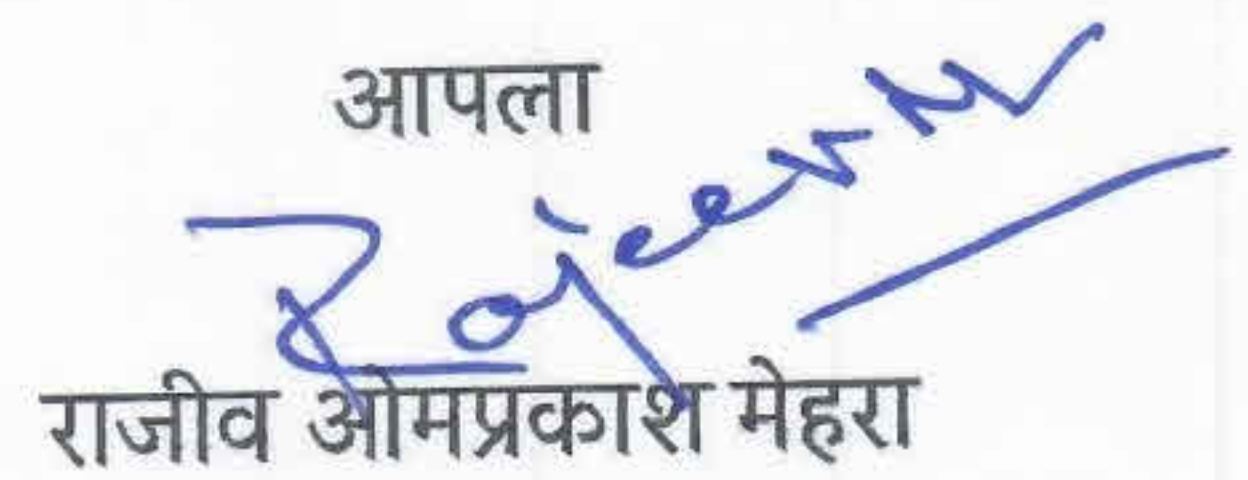 आपला
Rajeev
राजीव ओमप्रकाश मेहरा